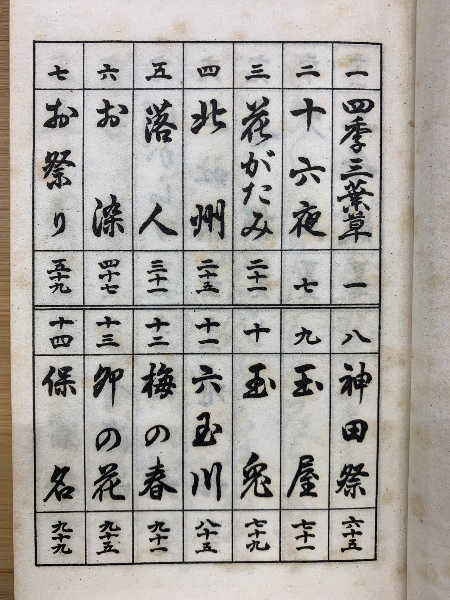 一 四季三葉草 一
二 十六夜 七
三 花がたみ 二十一
四 北州 二十五
五 落人 三十一
六 お染 四十七
七 お祭り 五十九
八 神田祭 六十五
九 玉屋 七十一
十 玉兎 七十九
十一 六玉川 八十五
十二 梅の春 九十一
十三 卯の花 九十五
十四 保名 九十九